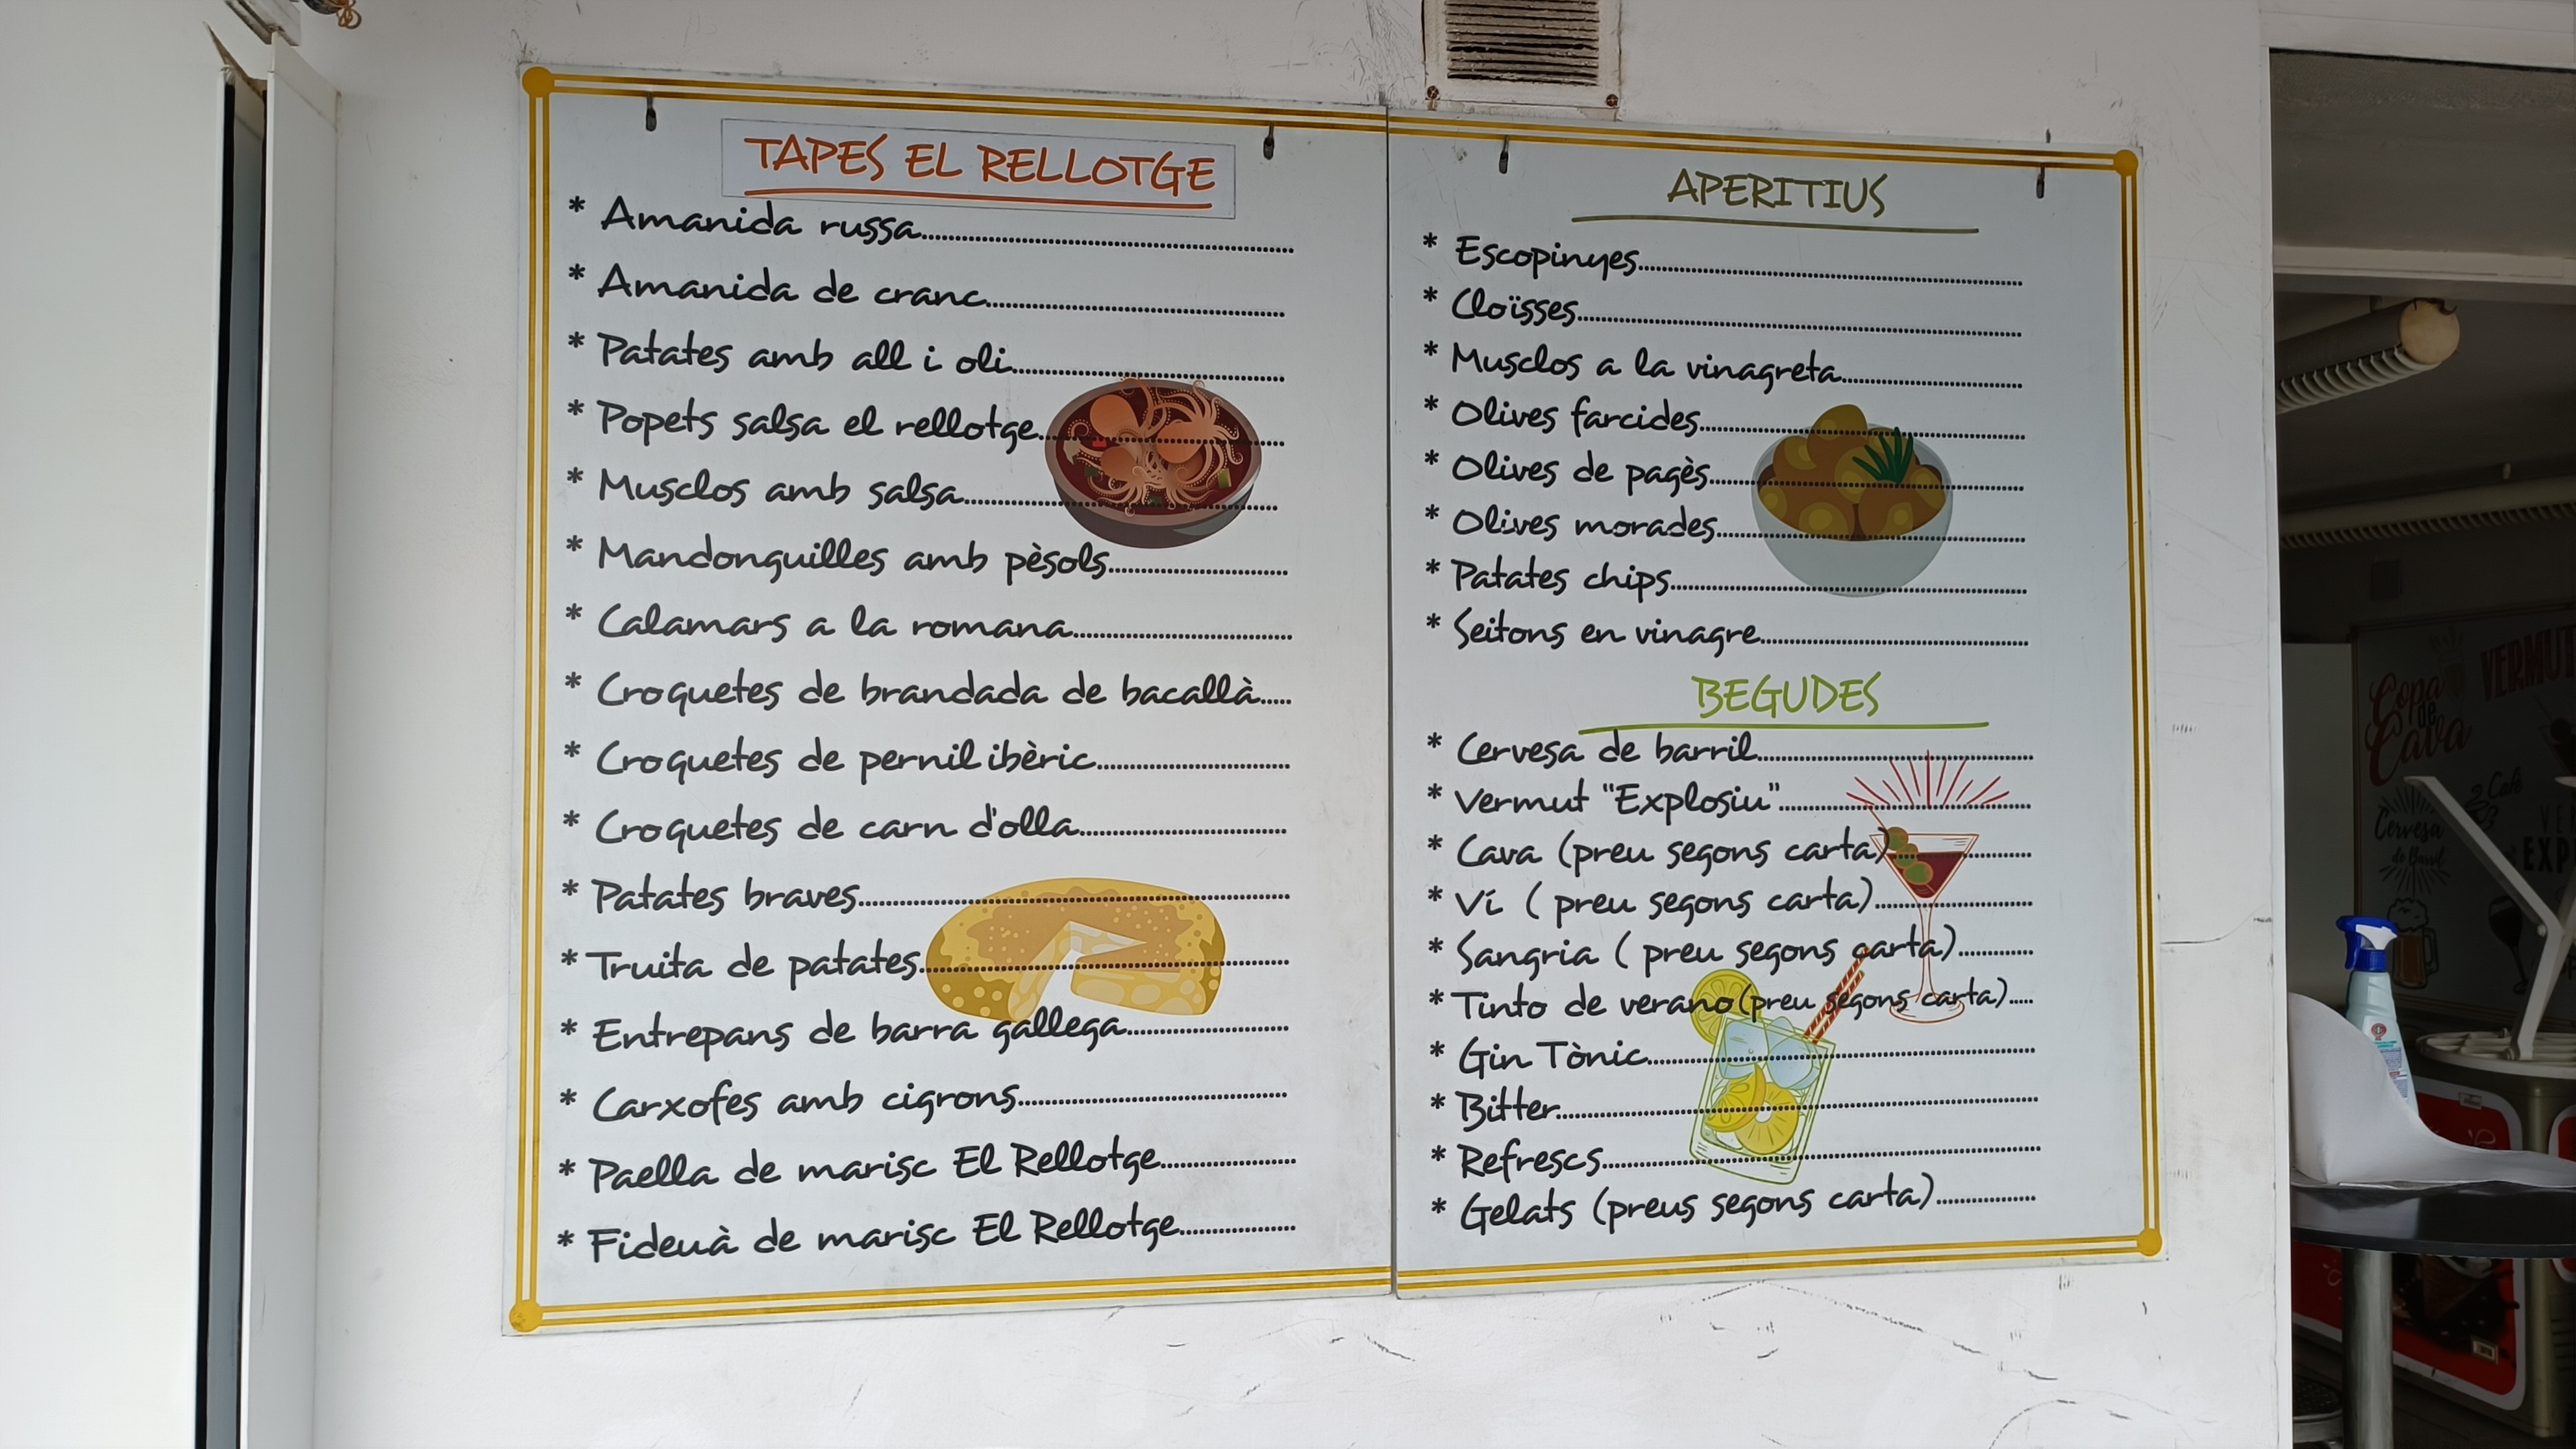 TAPES EL RELLOTGE
* Amanida russa
* Amanida de cranc
* Patates amb all i oli
* Popets salsa el rellotge
* Musclos amb salsa
* Mandonguilles amb pèsols
* Calamars a la romana
* Croquetes de brandada de bacallà
* Croquetes de pernil ibèric
* Croquetes de carn d'olla
* Patates braves
* Truita de patates
* Entrepans de barra gallega
* Carxofes amb cigrons
* Paella de marisc El Rellotge
* Fideuà de marisc El Rellotge
APERITIUS
* Escopinyes
* Cloïsses
* Musclos a la vinagreta
* Olives farcides
* Olives de pagès
* Olives morades
* Patates chips
* Seitons en vinagre
BEGUDES
* Cervesa de barril
* Vermut "Explosiu"
* Cava (preu segons carta)
* Ví ( preu segons carta)
* Sangria ( preu segons carta)
* Tinto de verano (preu segons carta)
* Gin Tònic
* Bitter
* Refrescs
* Gelats (preus segons carta)
Copa
de
Cava
VERMUT
Café
Cervesa
de Barril